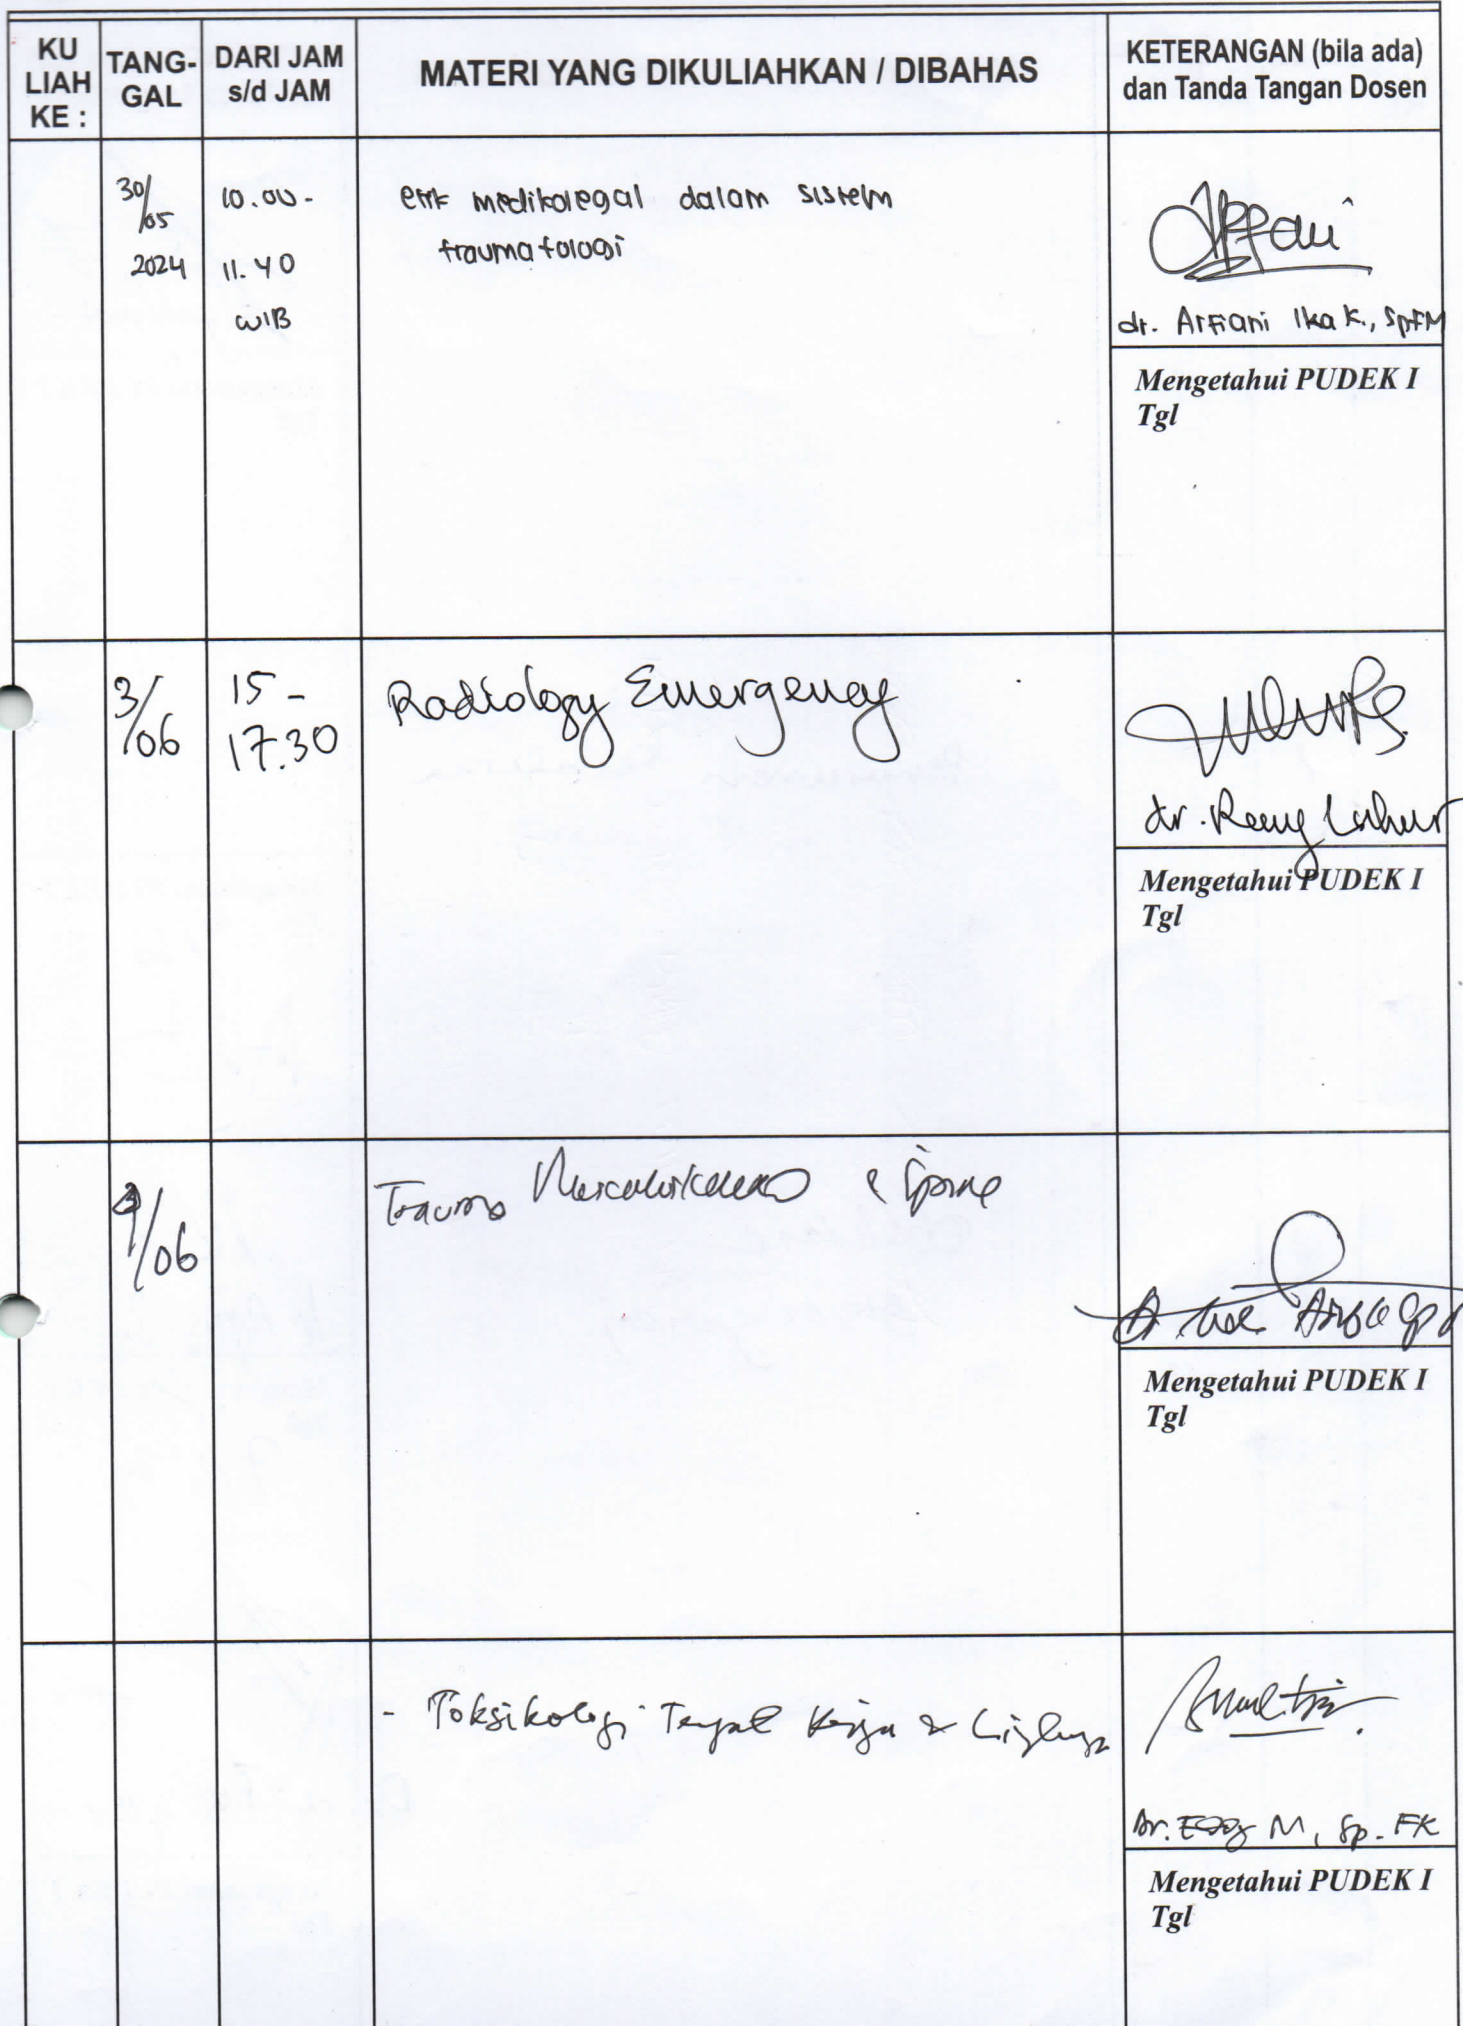 KU LIAH KE :
TANG-GAL
DARI JAM s/d JAM
MATERI YANG DIKULIAHKAN / DIBAHAS
KETERANGAN (bila ada)
dan Tanda Tangan Dosen
30/05 10.00 - etik medikolegal dalam sistem
2024 11.40 traumatologi
WIB
dr. Arfiani Ika K., SpFM
Mengetahui PUDEK I
Tgl
3/06 15 - Radiology Emergency
17.30
dr.
Mengetahui PUDEK I
Tgl
/06 Trauma & Spine
Mengetahui PUDEK I
Tgl
- Toksikologi Tempat Kerja &
Dr. M, Sp. FK
Mengetahui PUDEK I
Tgl